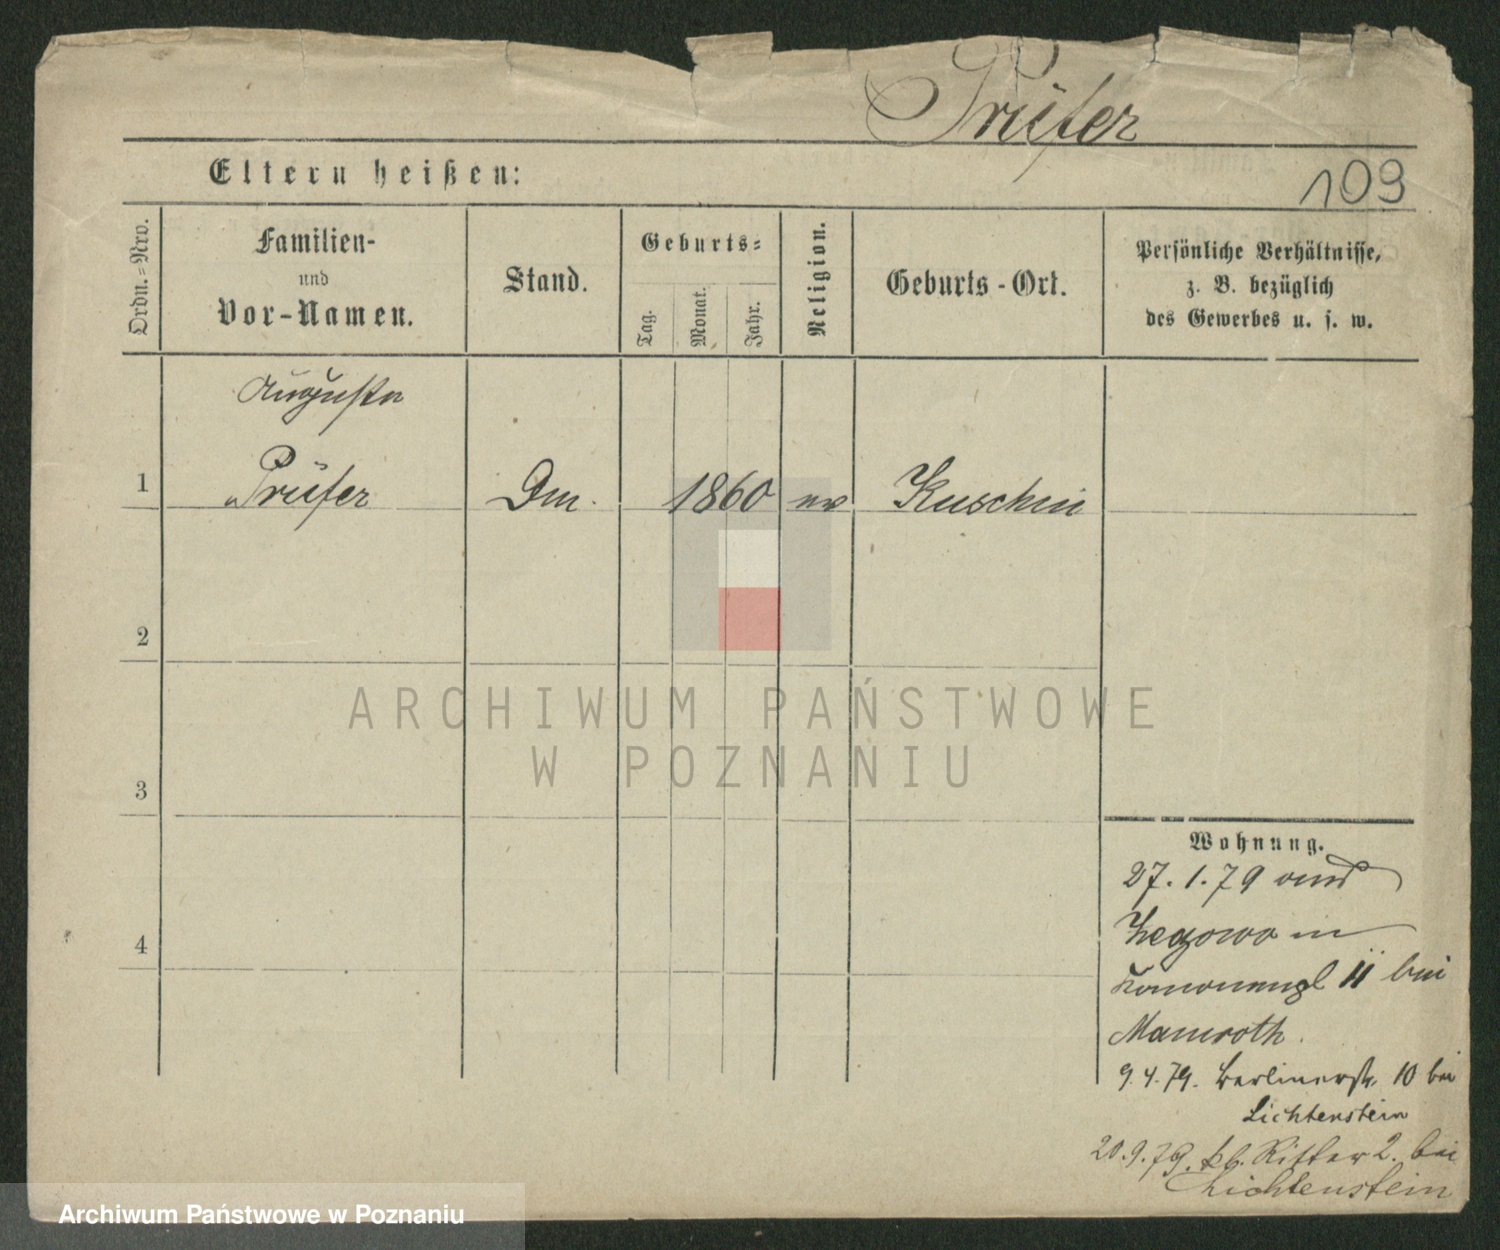 Prüfer
Eltern heißen:
109
Ordn.=Nro.
Familien-
und
Vor-Namen.
Stand.
Geburts=
Tag.
Monat.
Jahr.
Religion.
Geburts-Ort.
Persönliche Verhältnisse,
z. B. bezüglich
des Gewerbes u. s. w.
Auguste
1
Prüfer
Dm.
1860
ev
Kuschin
2
ARCHIWUM PAŃSTWOWE
W POZNANIU
3
Wohnung.
27. 1. 79
in
4
11 bei
Mamroth.
9. 4. 79. Berlinerstr. 10 bei
Lichtenstein
20. 9. 79. kl. Ritter 2. bei
Lichtenstein
Archiwum Państwowe w Poznaniu